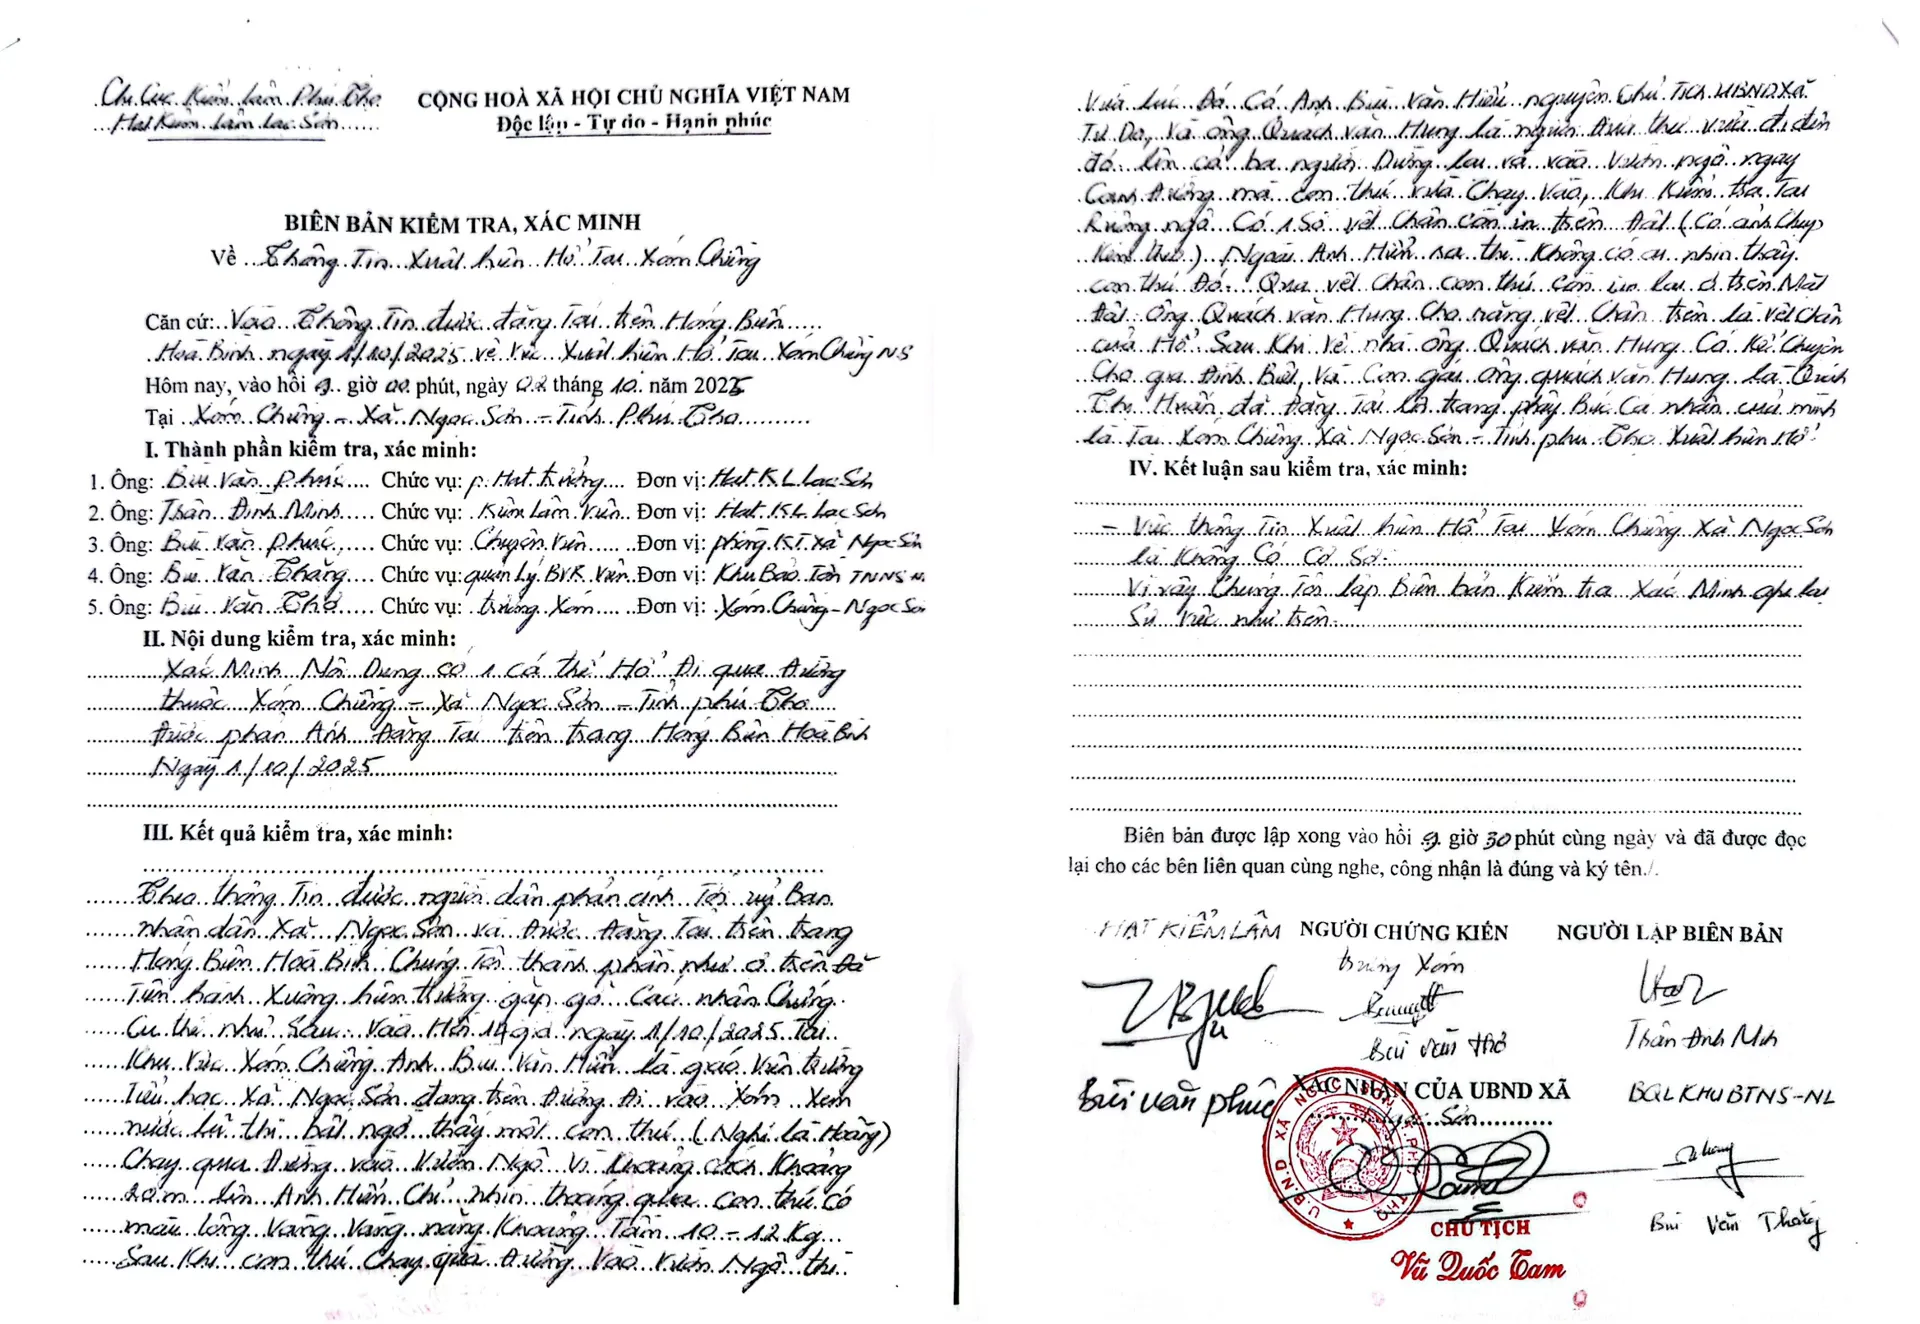 Chi Cục Kiểm Lâm Phú Thọ
Hạt Kiểm Lâm Lạc Sơn
CỘNG HOÀ XÃ HỘI CHỦ NGHĨA VIỆT NAM
Độc lập - Tự do - Hạnh phúc
BIÊN BẢN KIỂM TRA, XÁC MINH
Về Thông Tin Xuất hiện Hổ Tại Xóm Chiềng
Căn cứ: Vào Thông Tin được đăng Tải trên Hóng Biến
Hoà Bình ngày 1/10/2025 về việc Xuất hiện Hổ Tại Xóm Chiềng NS
Hôm nay, vào hồi 9 giờ 00 phút, ngày 02 tháng 10 năm 2025
Tại Xóm Chiềng - Xã Ngọc Sơn - Tỉnh Phú Thọ
I. Thành phần kiểm tra, xác minh:
1. Ông: Bùi Văn Phúc Chức vụ: p. Hạt trưởng Đơn vị: Hạt KL Lạc Sơn
2. Ông: Trần Đình Minh Chức vụ: Kiểm Lâm Viên Đơn vị: Hạt KL Lạc Sơn
3. Ông: Bùi Văn Phúc Chức vụ: Chuyên Viên Đơn vị: phòng KT Xã Ngọc Sơn
4. Ông: Bùi Văn Thắng Chức vụ: quản Lý BVR Viên Đơn vị: Khu Bảo Tồn TNNS
5. Ông: Bùi Văn Thơ Chức vụ: trưởng Xóm Đơn vị: Xóm Chiềng - Ngọc Sơn
II. Nội dung kiểm tra, xác minh:
Xác Minh Nội Dung có 1 cá thể Hổ Đi qua Đường
thuộc Xóm Chiềng - Xã Ngọc Sơn - Tỉnh phú Thọ
Được phản Ánh Đăng Tải trên trang Hóng Biến Hoà Bình
Ngày 1/10/2025
III. Kết quả kiểm tra, xác minh:
Theo thông Tin được người dân phản ánh Tới uỷ Ban
nhân dân Xã Ngọc Sơn và Được Đăng Tải trên trang
Hóng Biến Hoà Bình Chúng Tôi thành phần như ở trên Đã
Tiến hành Xuống hiện trường gặp gỡ Các nhân Chứng
Cụ thể như Sau: Vào Hồi 14 giờ ngày 1/10/2025 Tại
Khu Vực Xóm Chiềng Anh Bùi Văn Hiển là giáo Viên trường
Tiểu học Xã Ngọc Sơn đang trên Đường Đi vào Xóm Xem
nước lũ thì bất ngờ thấy một con thú (Nghi là Hoẵng)
Chạy qua Đường vào Vườn Ngô Vì Khoảng cách Khoảng
20m lên Anh Hiển Chỉ nhìn thoáng qua con thú có
màu lông vàng vàng nặng Khoảng Tầm 10 - 12 Kg
Sau Khi con thú Chạy qua Đường Vào Vườn Ngô thì
Vừa lúc Đó Có Anh Bùi Văn Hiểu nguyên Chủ Tịch UBND Xã
Tự Do, Và ông Quách Văn Hưng là người Đưa thư vừa đi đến
đó lên cả ba người Dừng lại và vào Vườn ngô ngay
Cạnh Đường mà con thú vừa Chạy Vào, Khi Kiểm tra Tại
Ruộng ngô Có 1 Số vết Chân Còn in trên Đất (Có ảnh Chụp
Kèm theo) Ngoài Anh Hiển ra thì Không có ai nhìn thấy
con thú Đó. Qua vết Chân con thú còn in lại ở trên Mặt
Đất Ông Quách Văn Hưng Cho rằng vết Chân trên là vết chân
của Hổ Sau Khi về nhà ông Quách Văn Hưng Có Kể Chuyện
Cho gia Đình Biết, Và Con gái ông Quách Văn Hưng là Quách
Thị Huấn đã Đăng Tải lên trang phây Búc Cá nhân của mình
là Tại Xóm Chiềng Xã Ngọc Sơn - Tỉnh phú Thọ Xuất hiện Hổ
IV. Kết luận sau kiểm tra, xác minh:
- Việc thông Tin Xuất hiện Hổ Tại Xóm Chiềng Xã Ngọc Sơn
là Không Có Cơ Sở.
Vì vậy Chúng Tôi lập Biên bản Kiểm tra Xác Minh ghi lại
Sự Việc như trên.
Biên bản được lập xong vào hồi 9 giờ 30 phút cùng ngày và đã được đọc
lại cho các bên liên quan cùng nghe, công nhận là đúng và ký tên./.
HẠT KIỂM LÂM NGƯỜI CHỨNG KIẾN NGƯỜI LẬP BIÊN BẢN
trưởng Xóm
Bùi Văn Thơ
Trần Đình Minh
Bùi Văn Phúc
XÁC NHẬN CỦA UBND XÃ
Ngọc Sơn
BQL KHU BTNS-NL
U.B.N.D XÃ NGỌC SƠN T.PHÚ THỌ
CHỦ TỊCH
Vũ Quốc Tam
Bùi Văn Thắng